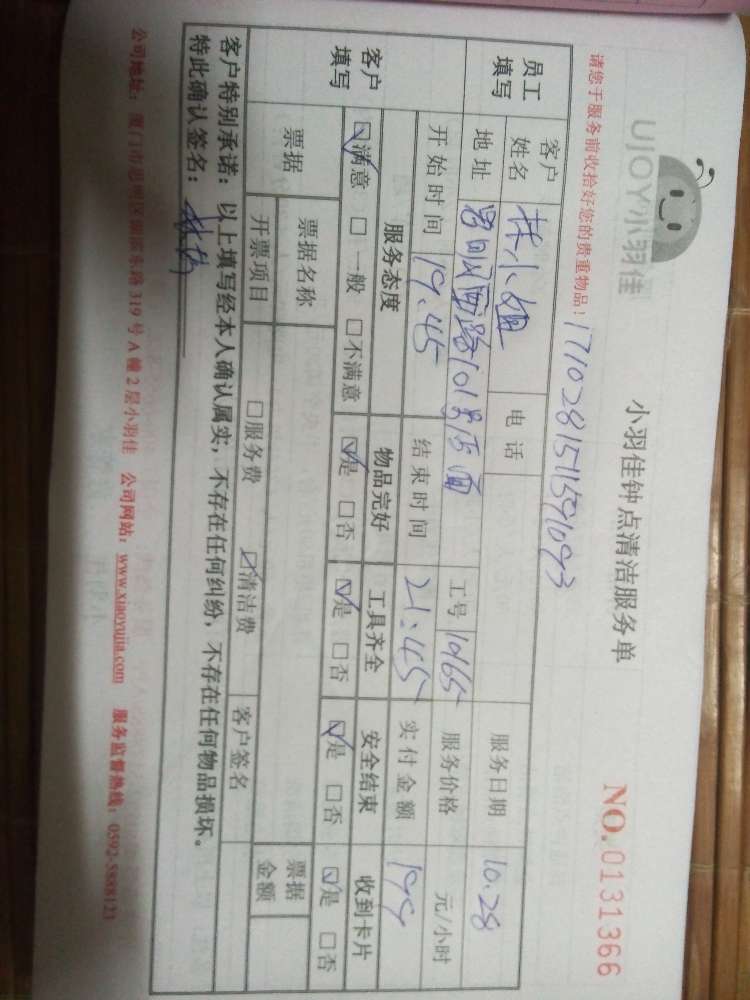 UJOY小羽佳
小羽佳钟点清洁服务单
NO.0131366
请您于服务前收拾好您的贵重物品！
员工填写
客户姓名 林小姐 电话 服务日期 10.28
地址 工号 1065 服务价格 元/小时
开始时间 19:45 结束时间 21:45 实付金额 199
客户填写
服务态度 物品完好 工具齐全 安全结束 收到卡片
☑满意 □一般 □不满意 ☑是 □否 ☑是 □否 ☑是 □否 ☑是 □否
票据 票据名称 票据金额
开票项目 □服务费 ☑清洁费 客户签名
客户特别承诺：以上填写经本人确认属实，不存在任何纠纷，不存在任何物品损坏。
特此确认签名：
公司地址：厦门市思明区湖滨东路319号A幢2层小羽佳 公司网站：www.xiaoyujia.com 服务监督热线：0592-5888123